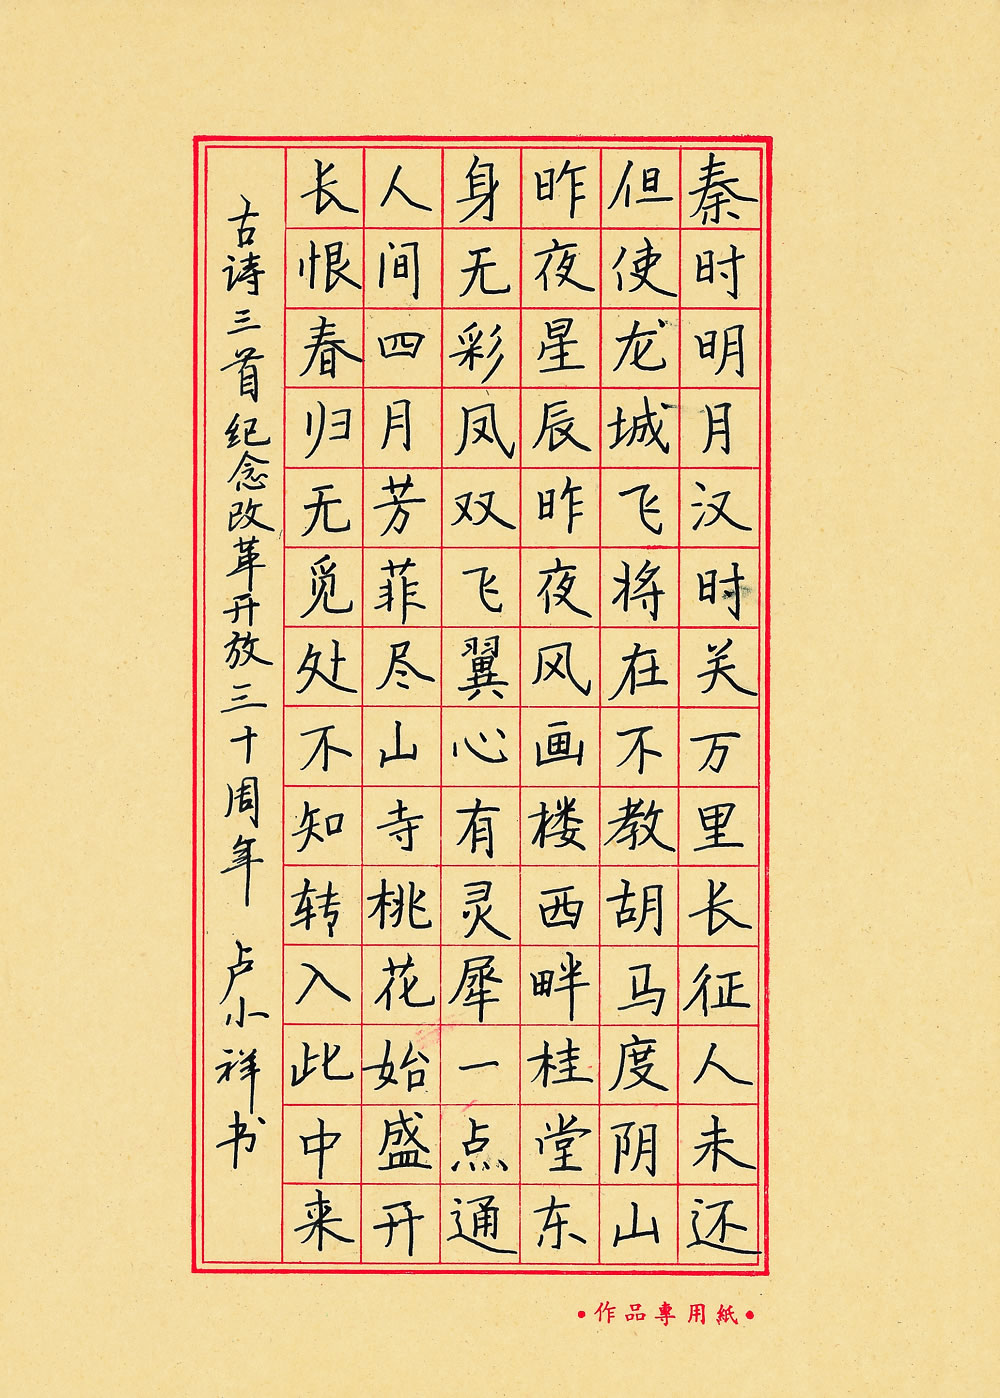 秦时明月汉时关万里长征人未还
但使龙城飞将在不教胡马度阴山
昨夜星辰昨夜风画楼西畔桂堂东
身无彩凤双飞翼心有灵犀一点通
人间四月芳菲尽山寺桃花始盛开
长恨春归无觅处不知转入此中来
古诗三首纪念改革开放三十周年 卢小祥书
•作品專用紙•